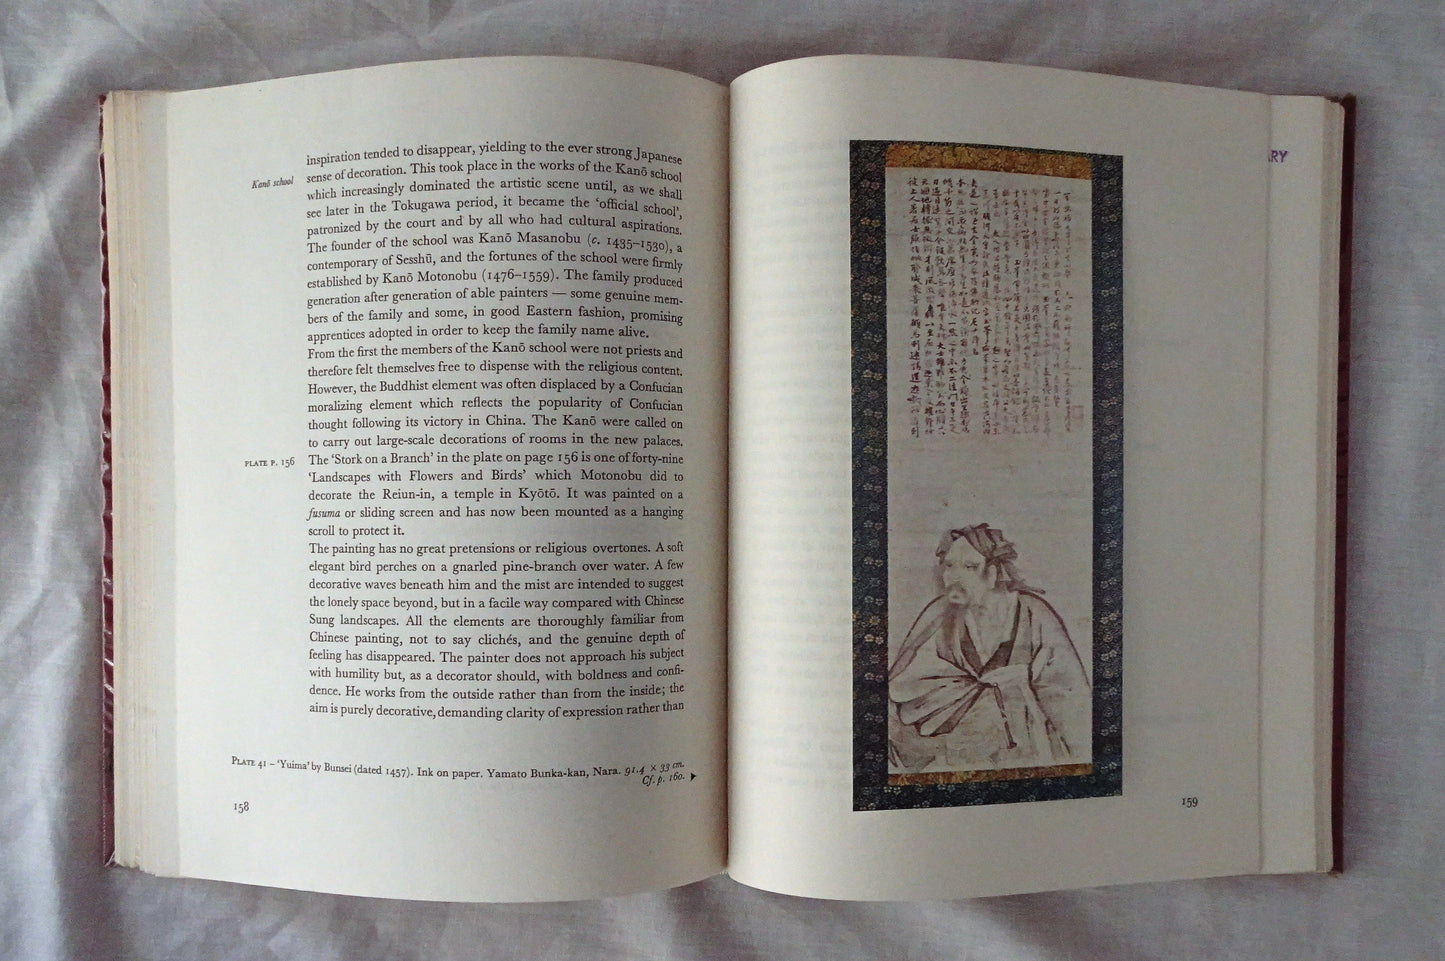 inspiration tended to disappear, yielding to the ever strong Japanese
Kanō school
sense of decoration. This took place in the works of the Kanō school
which increasingly dominated the artistic scene until, as we shall
see later in the Tokugawa period, it became the ‘official school’,
patronized by the court and by all who had cultural aspirations.
The founder of the school was Kanō Masanobu (c. 1435–1530), a
contemporary of Sesshū, and the fortunes of the school were firmly
established by Kanō Motonobu (1476–1559). The family produced
generation after generation of able painters — some genuine mem-
bers of the family and some, in good Eastern fashion, promising
apprentices adopted in order to keep the family name alive.
From the first the members of the Kanō school were not priests and
therefore felt themselves free to dispense with the religious content.
However, the Buddhist element was often displaced by a Confucian
moralizing element which reflects the popularity of Confucian
thought following its victory in China. The Kanō were called on
to carry out large-scale decorations of rooms in the new palaces.
PLATE P. 156
The ‘Stork on a Branch’ in the plate on page 156 is one of forty-nine
‘Landscapes with Flowers and Birds’ which Motonobu did to
decorate the Reiun-in, a temple in Kyōtō. It was painted on a
fusuma or sliding screen and has now been mounted as a hanging
scroll to protect it.
The painting has no great pretensions or religious overtones. A soft
elegant bird perches on a gnarled pine-branch over water. A few
decorative waves beneath him and the mist are intended to suggest
the lonely space beyond, but in a facile way compared with Chinese
Sung landscapes. All the elements are thoroughly familiar from
Chinese painting, not to say clichés, and the genuine depth of
feeling has disappeared. The painter does not approach his subject
with humility but, as a decorator should, with boldness and confi-
dence. He works from the outside rather than from the inside; the
aim is purely decorative, demanding clarity of expression rather than
PLATE 41 – ‘Yuima’ by Bunsei (dated 1457). Ink on paper. Yamato Bunka-kan, Nara. 91.4 × 33 cm.
Cf. p. 160.
158
ARY
159